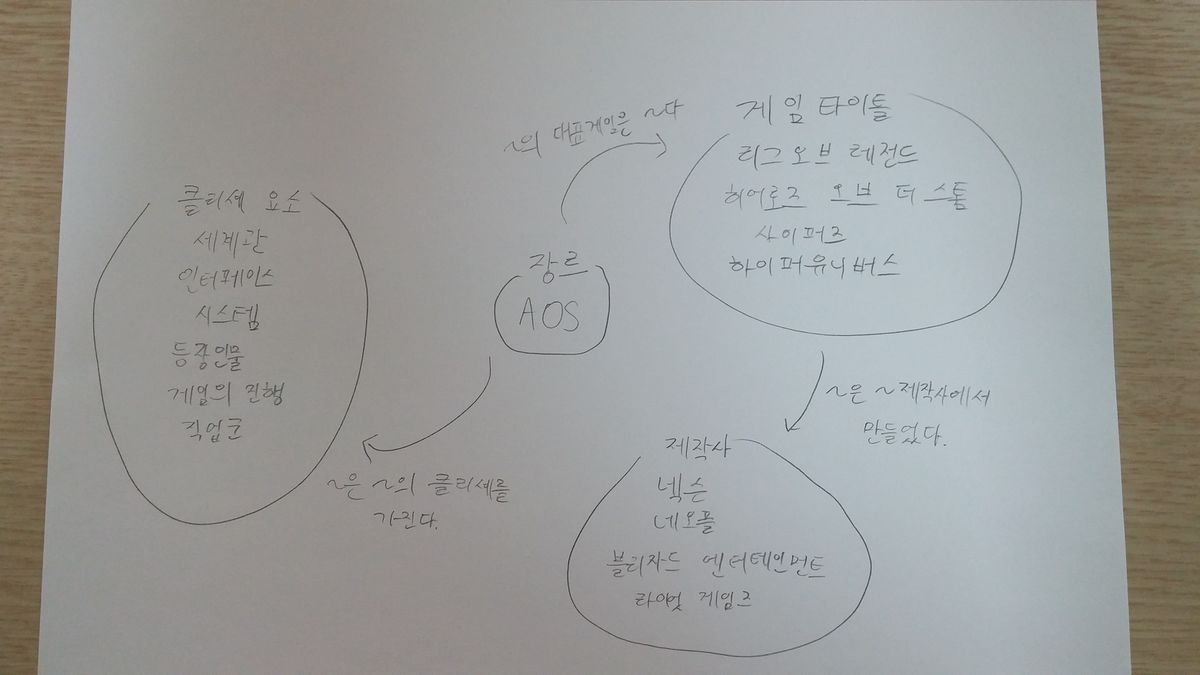 클리셰 요소
세계관
인터페이스
시스템
등장인물
게임의 진행
직업군
~은 ~의 클리셰를
가진다.
장르
AOS
~의 대표게임은 ~다
게임 타이틀
리그오브 레전드
히어로즈 오브 더 스톰
사이퍼즈
하이퍼유니버스
~은 ~제작사에서
만들었다.
제작사
넥슨
네오플
블리자드 엔터테인먼트
라이엇 게임즈